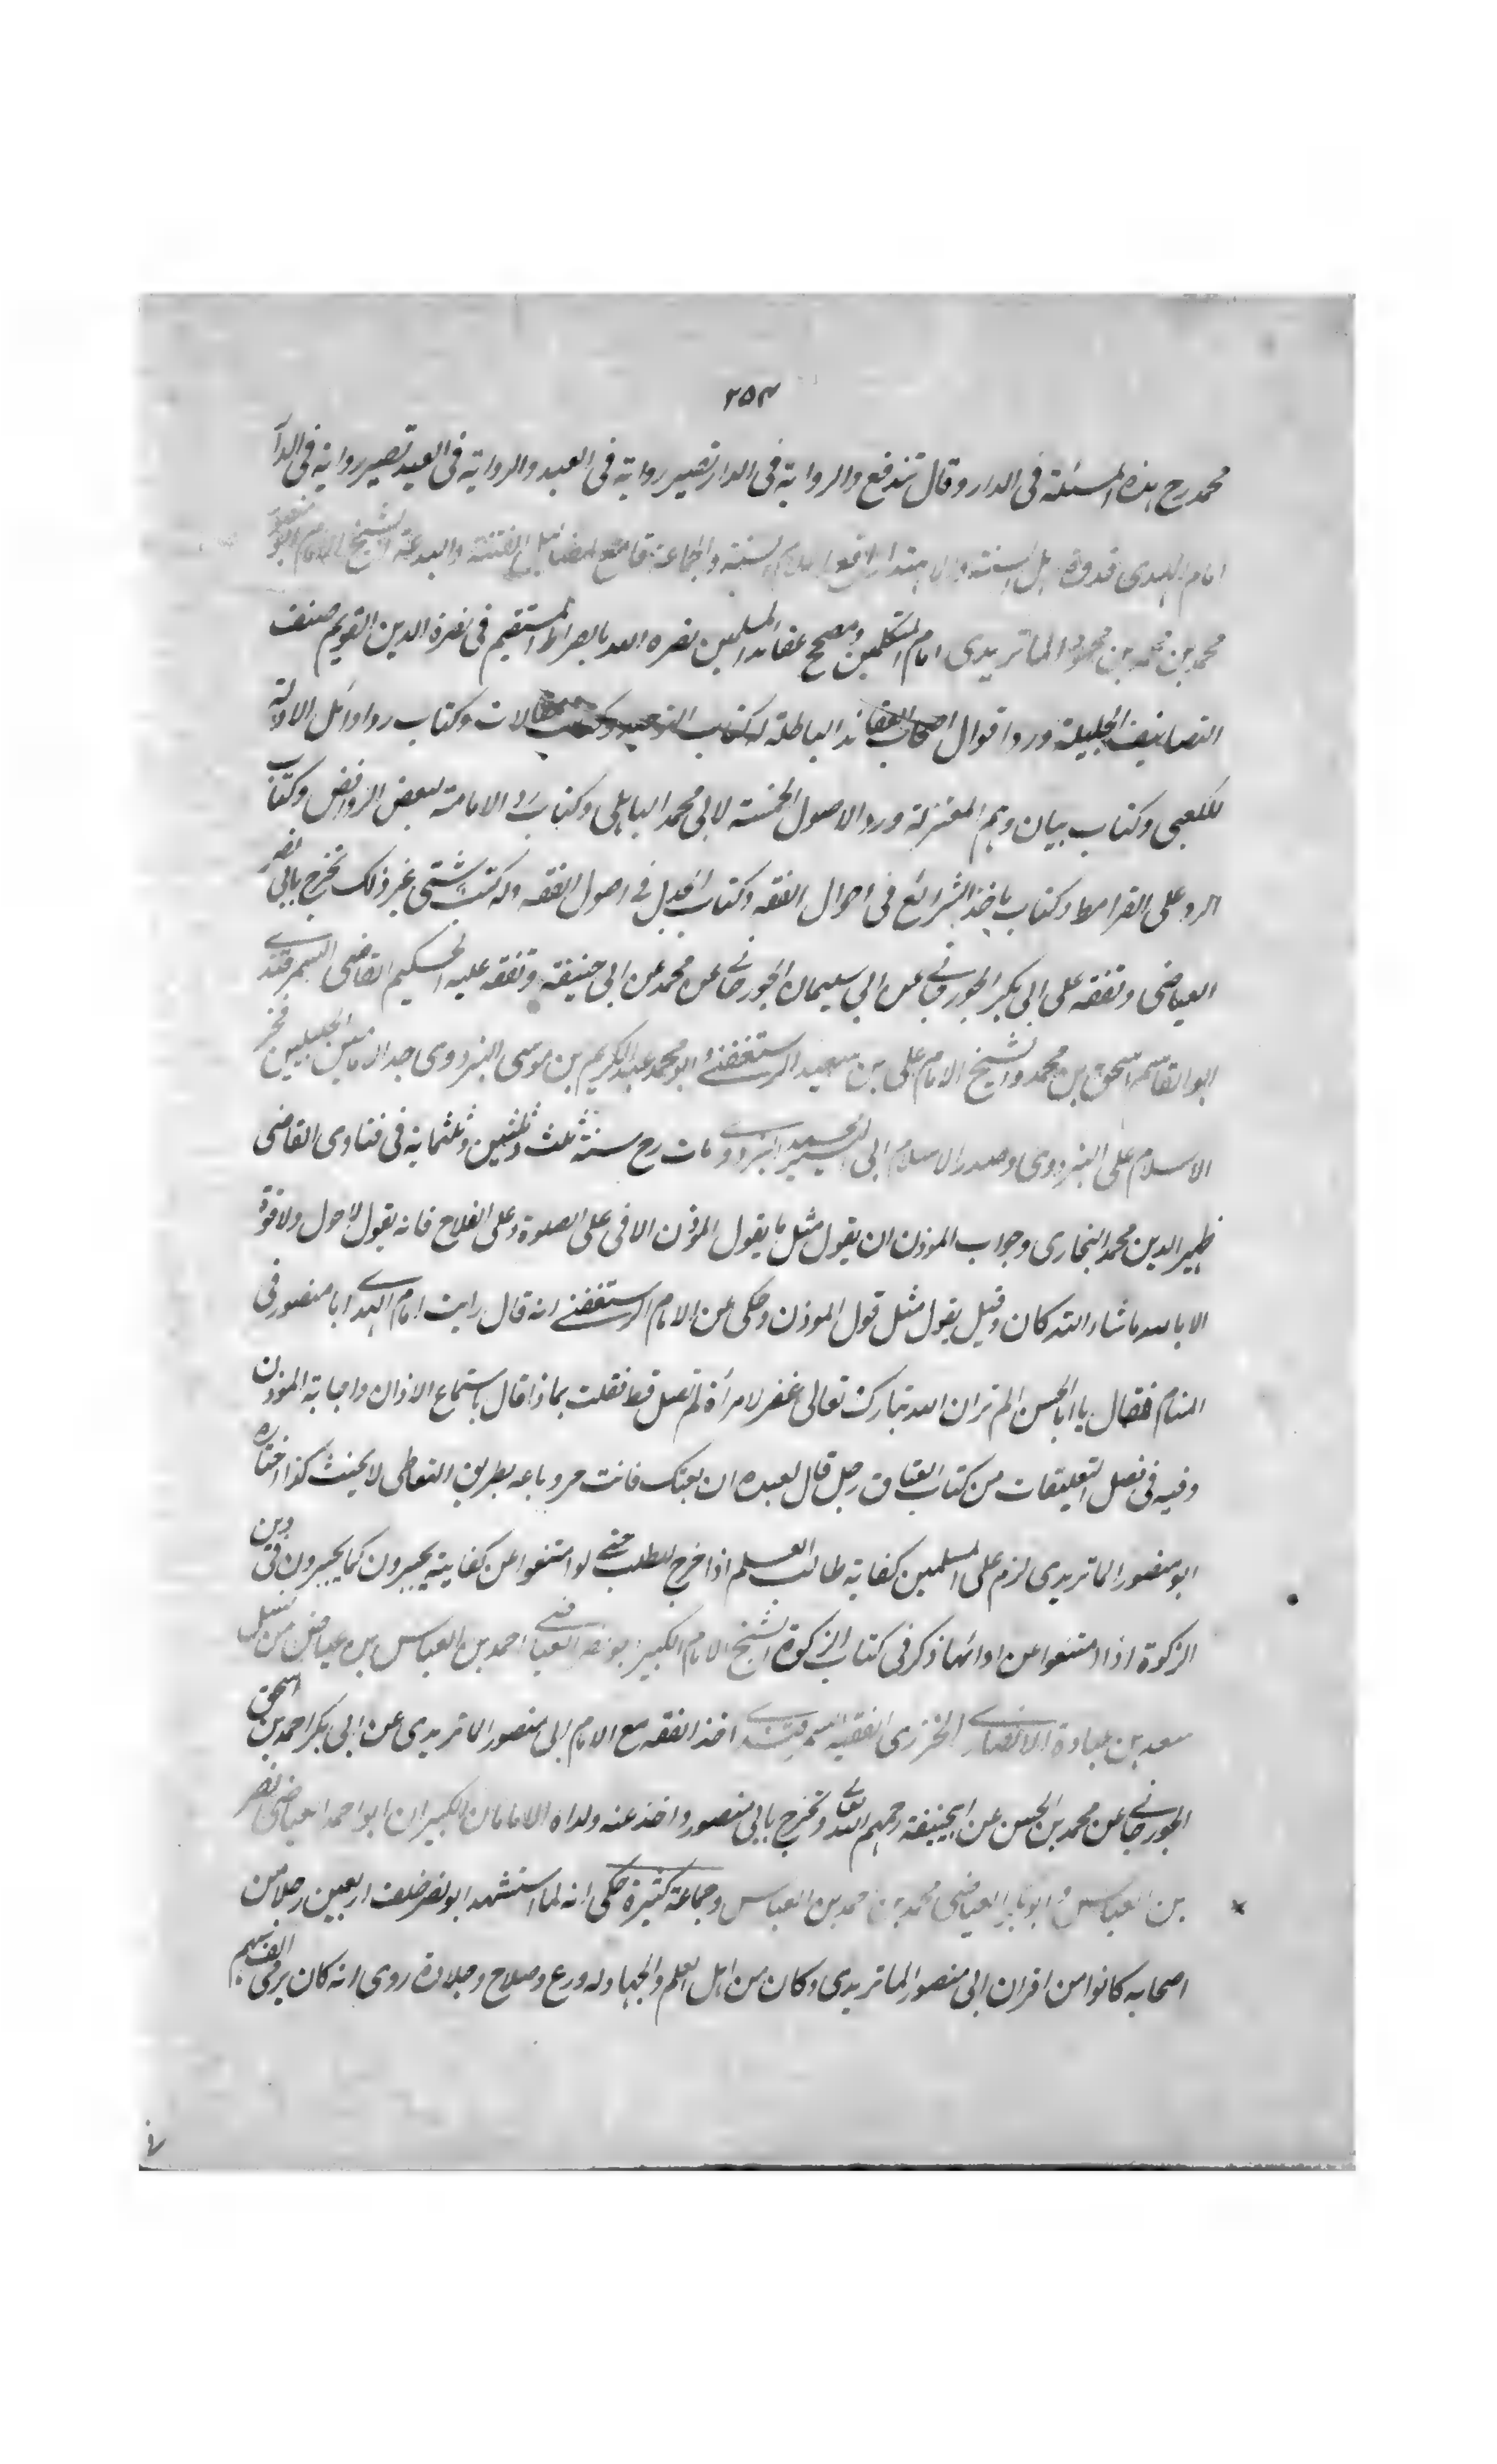 ٢٥٣
محمد رح هذه المسئلة فى الدار وقال تندفع والرواية فى الدار تصير رواية فى العبد والرواية فى العبد تصير رواية فى الدار
امام الهدى قدوة اهل السنة والاهتداء رافع اعلام السنة والجماعة قامع اضاليل الفتنة والبدعة الشيخ الامام ابو منصور
محمد بن محمد بن محمود الماتريدى امام المتكلمين ومصحح عقائد المسلمين نصره الله بالصراط المستقيم فى نصرة الدين القويم صنف
التصانيف الجليلة ورد اقوال اصحاب العقائد الباطلة له كتاب التوحيد وكتاب المقالات وكتاب رد اوائل الادلة
للكعبى وكتاب بيان وهم المعتزلة ورد الاصول الخمسة لابى محمد الباهلى وكتاب رد الامامة لبعض الروافض وكتاب
الرد على القرامطة وكتاب ماخذ الشرائع فى اصول الفقه وكتاب الجدل فى اصول الفقه وله كتب شتى غير ذلك تخرج بابى نصر
العياضى وتفقه على ابى بكر الجوزجانى عن ابى سليمان الجوزجانى عن محمد عن ابى حنيفة وتفقه عليه الحكيم القاضى السمرقندى
ابو القاسم اسحق بن محمد والشيخ الامام على بن سعيد الرستغفنى وابو محمد عبد الكريم بن موسى البزدوى جد الامامين الجليلين فخر
الاسلام على البزدوى وصدر الاسلام ابى اليسر محمد البزدوى مات رح سنة ثلث وثلثين وثلثمائة فى فتاوى القاضى
ظهير الدين محمد البخارى وجواب الموذن ان يقول مثل ما يقول الموذن الا فى على الصلوة وعلى الفلاح فانه يقول لا حول ولا قوة
الا بالله ما شاء الله كان وقيل يقول مثل قول الموذن وحكى عن الامام الرستغفنى انه قال رايت امام الهدى ابا منصور فى
المنام فقال يا ابا الحسن الم تر ان الله تبارك تعالى غفر لامرأة لم تصل قط فقلت بماذا قال باستماع الاذان واجابة الموذن
وفيه فى فصل التعليقات من كتاب العتاق رجل قال لعبده ان بعتك فانت حر وباعه بطريق التعاطى لا يحنث كذا اختاره
ابو منصور الماتريدى لزم على المسلمين كفاية طالب العلم اذا خرج للطلب حتى لو امتنعوا عن كفايته يجبرون كما يجبرون فى دين
الزكوة اذا امتنعوا عن ادائها ذكر فى كتاب الزكوة الشيخ الامام الكبير ابو نصر العياضى احمد بن العباس بن عياض من نسل
سعد بن عبادة الانصارى الخزرجى الفقيه السمرقندى اخذ الفقه مع الامام ابى منصور الماتريدى عن ابى بكر احمد بن اسحق
الجوزجانى عن محمد بن الحسن عن ابيحنيفة رحمهم الله تعالى وتخرج بابى منصور واخذ عنه ولداه الامامان الكبيران ابو احمد العياضى نصر
بن العباس وابو بكر العياضى محمد بن احمد بن العباس وجماعة كثيرة حكى انه لما استشهد ابو نصر خلف اربعين رجلا من
اصحابه كانوا من اقران ابى منصور الماتريدى وكان من اهل العلم والجهاد له ورع وصلاح وجلادة روى انه كان يرمى الف سهم